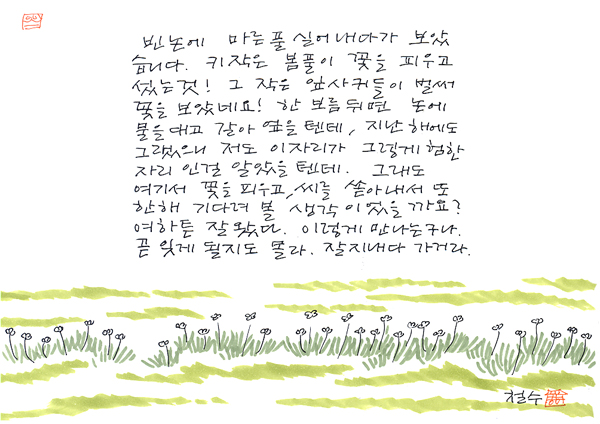 빈논에 마른풀 실어내다가 보았
습니다. 키작은 봄풀이 꽃을 피우고
섰는것! 그 작은 잎사귀들이 벌써
꽃을 보았네요! 한 보름 뒤면 논에
물을대고 갈아 엎을텐데, 지난해에도
그랬으니 저도 이자리가 그렇게 험한
자리 인걸 알았을텐데. 그래도
여기서 꽃을 피우고, 씨를 쏟아내서 또
한해 기다려 볼 생각 이었을까요?
여하튼 잘 왔다. 이렇게 만나는구나.
곧 잊게 될지도 몰라. 잘지내다 가거라.
철수